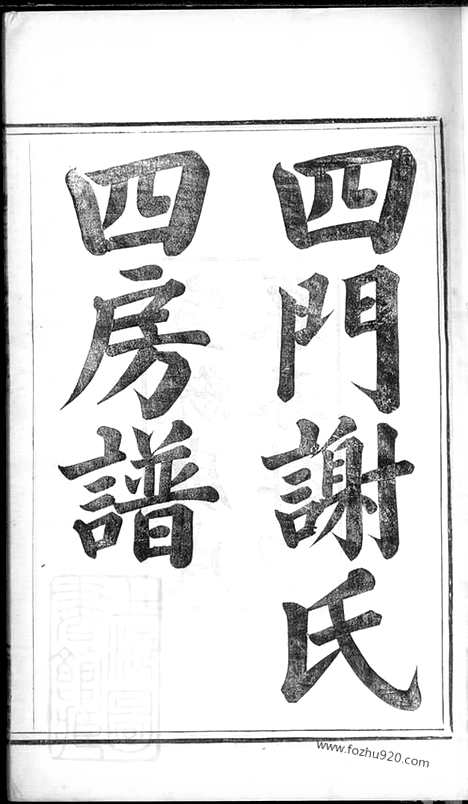 四門謝氏
四房譜
www.fozhu920.com